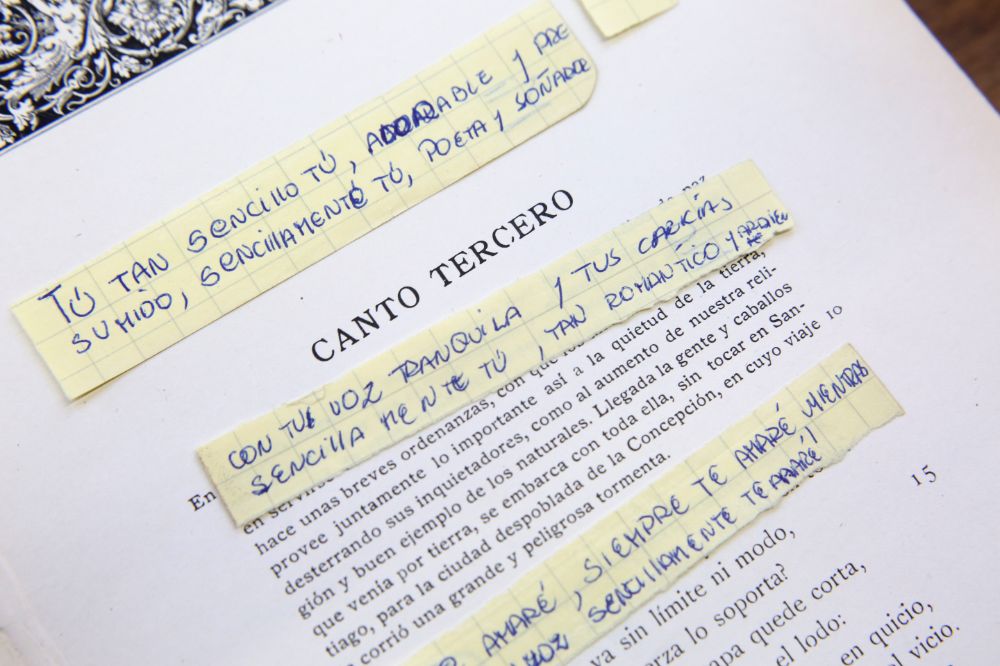 TÚ TAN SENCILLO TÚ, ADORABLE Y PRE
SUMIDO, SENCILLAMENTE TÚ, POETA Y SOÑADOR
CANTO TERCERO
CON TU VOZ TRANQUILA Y TUS CARICIAS
SENCILLAMENTE TÚ, TAN ROMANTICO Y ARDIEN
TE
En
en servi
hace unas breves ordenanzas, con que
provee juntamente lo importante así a la quietud de la tierra,
desterrando sus inquietadores, como al aumento de nuestra reli-
gión y buen ejemplo de los naturales. Llegada la gente y caballos
que venía por tierra, se embarca con toda ella, sin tocar en San-
tiago, para la ciudad despoblada de la Concepción, en cuyo viaje
corrió una grande y peligrosa tormenta.
AMARÉ, SIEMPRE TE AMARÉ MIENTRAS
SENCILLAMENTE TE AMARÉ!
15
va sin límite ni modo,
erza lo soporta?
apa quede corta,
el lodo:
en quicio,
al vicio.